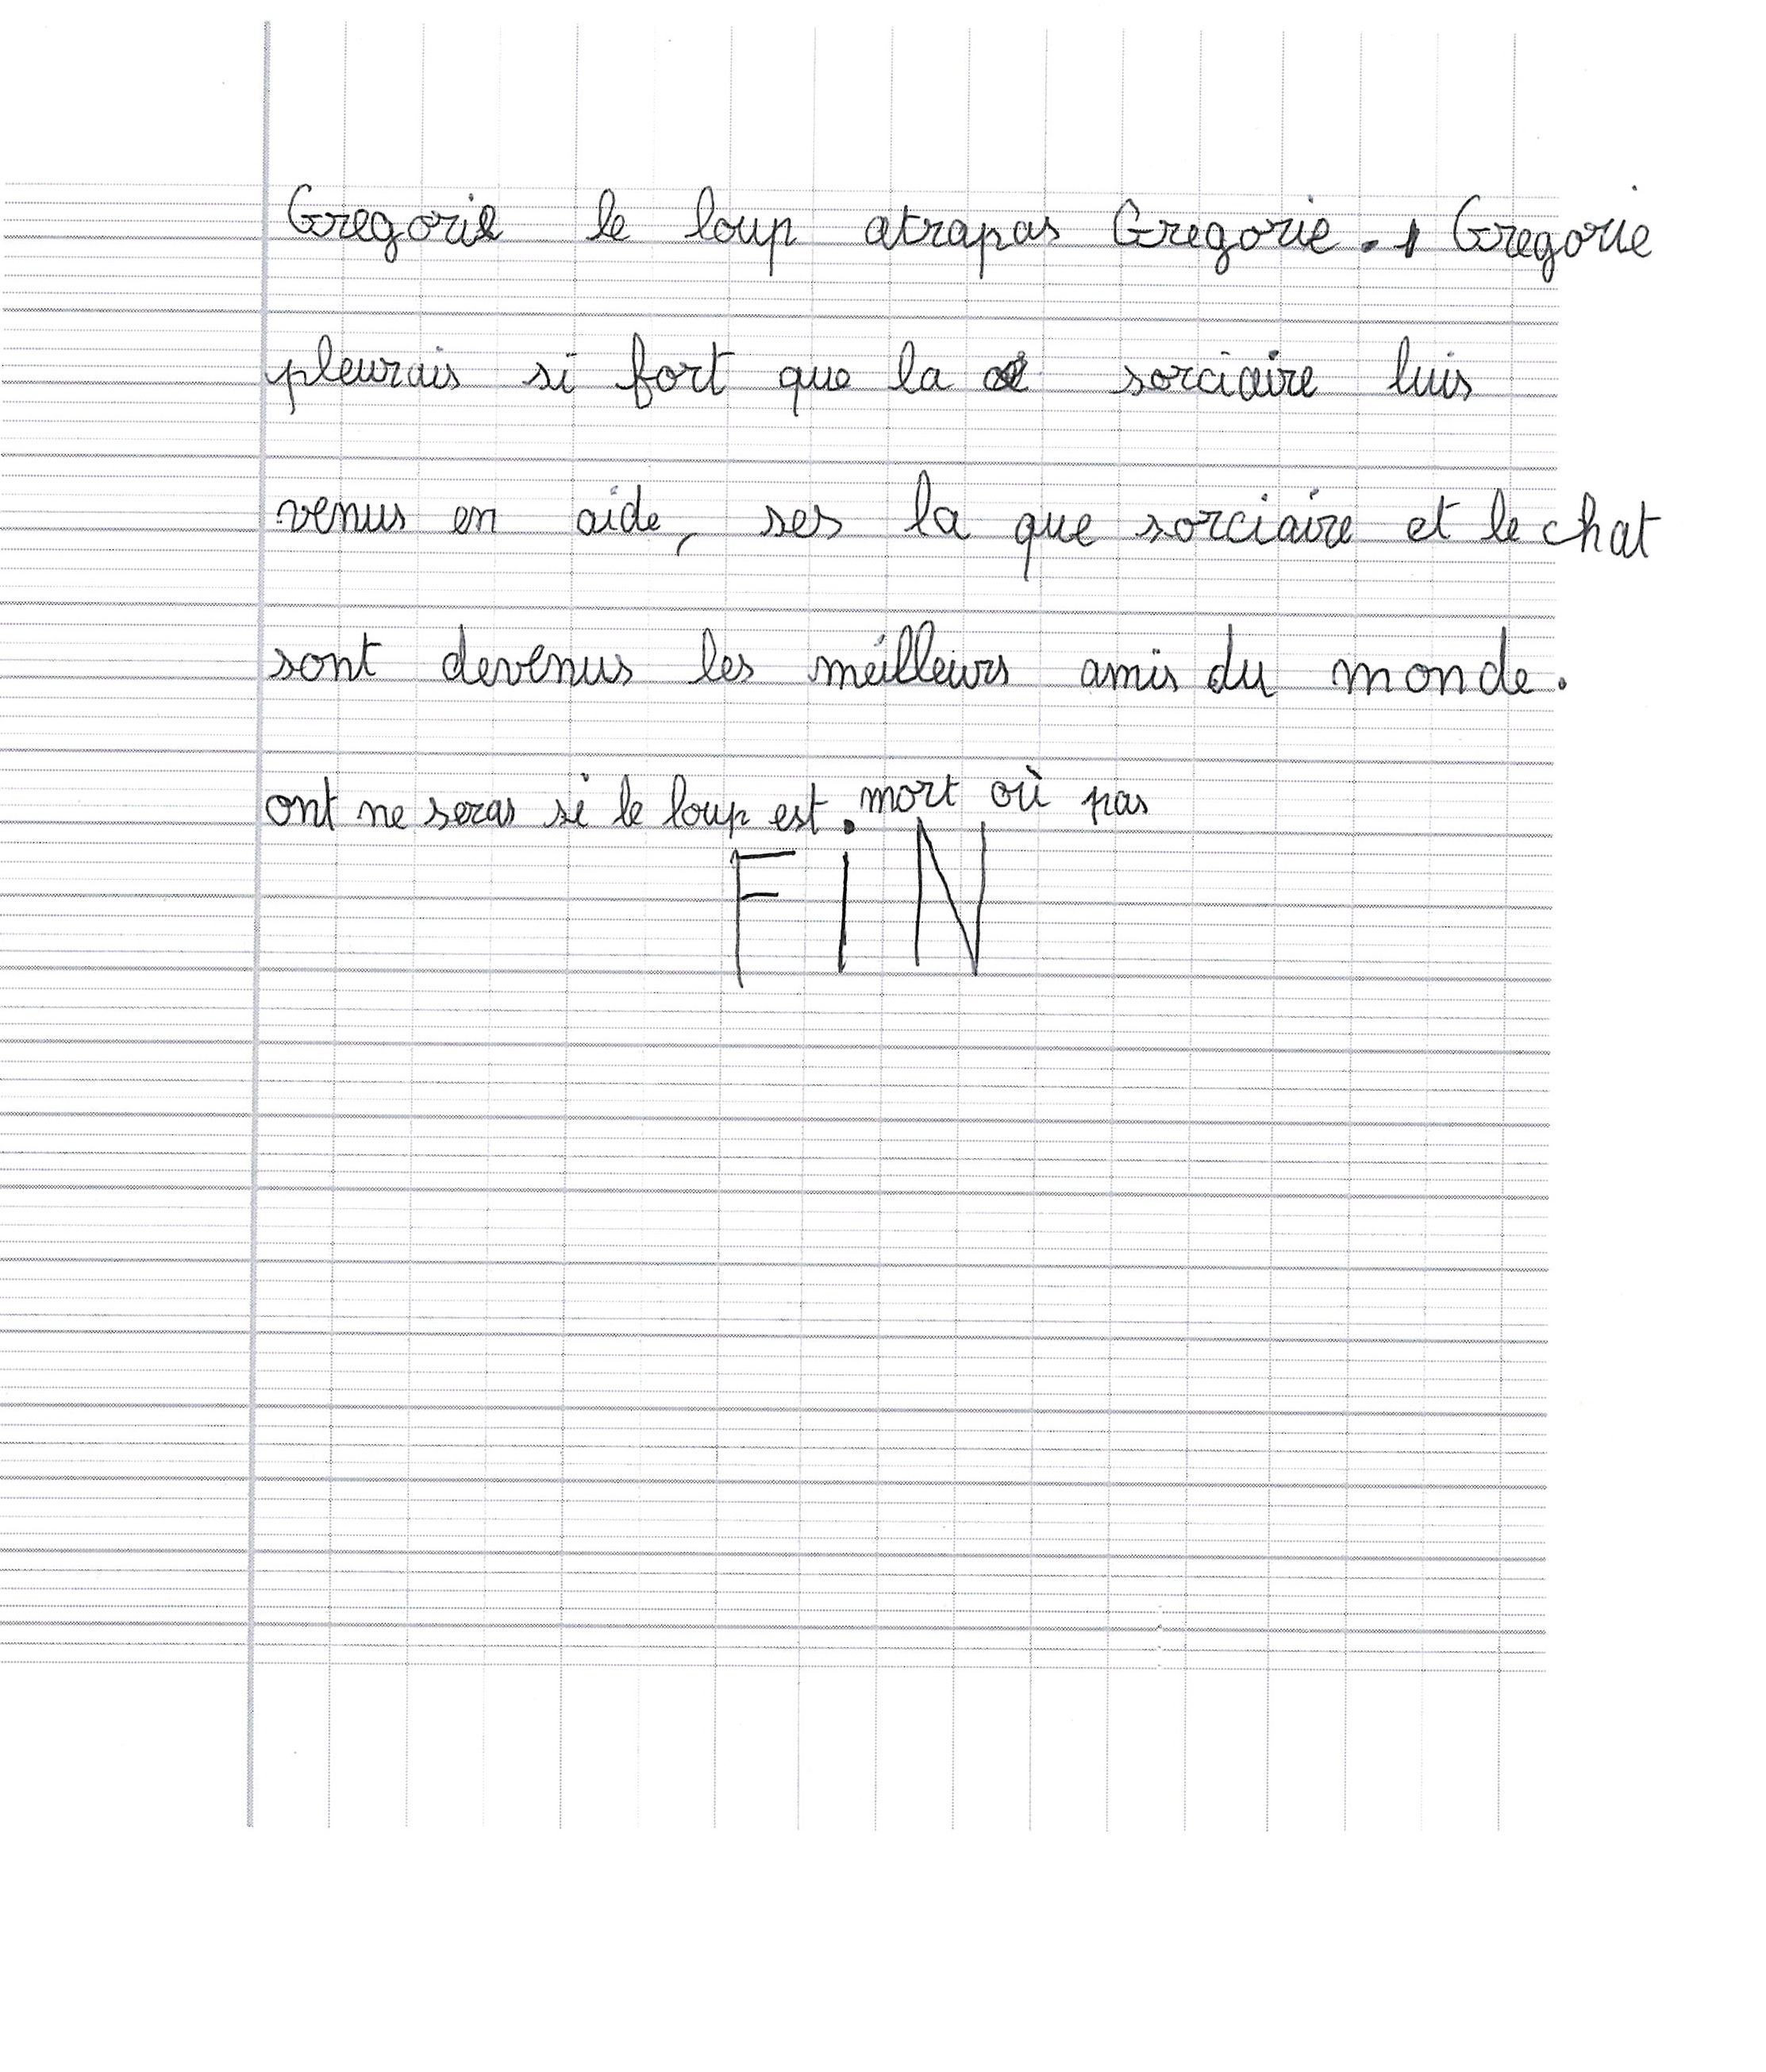 Gregorie le loup atrapas Gregorie. Gregorie
pleurais si fort que la sorciaire luis
venus en aide, ses la que sorciaire et le chat
sont devenus les meilleurs amis du monde.
ont ne seras si le loup est. mort où pas
FIN